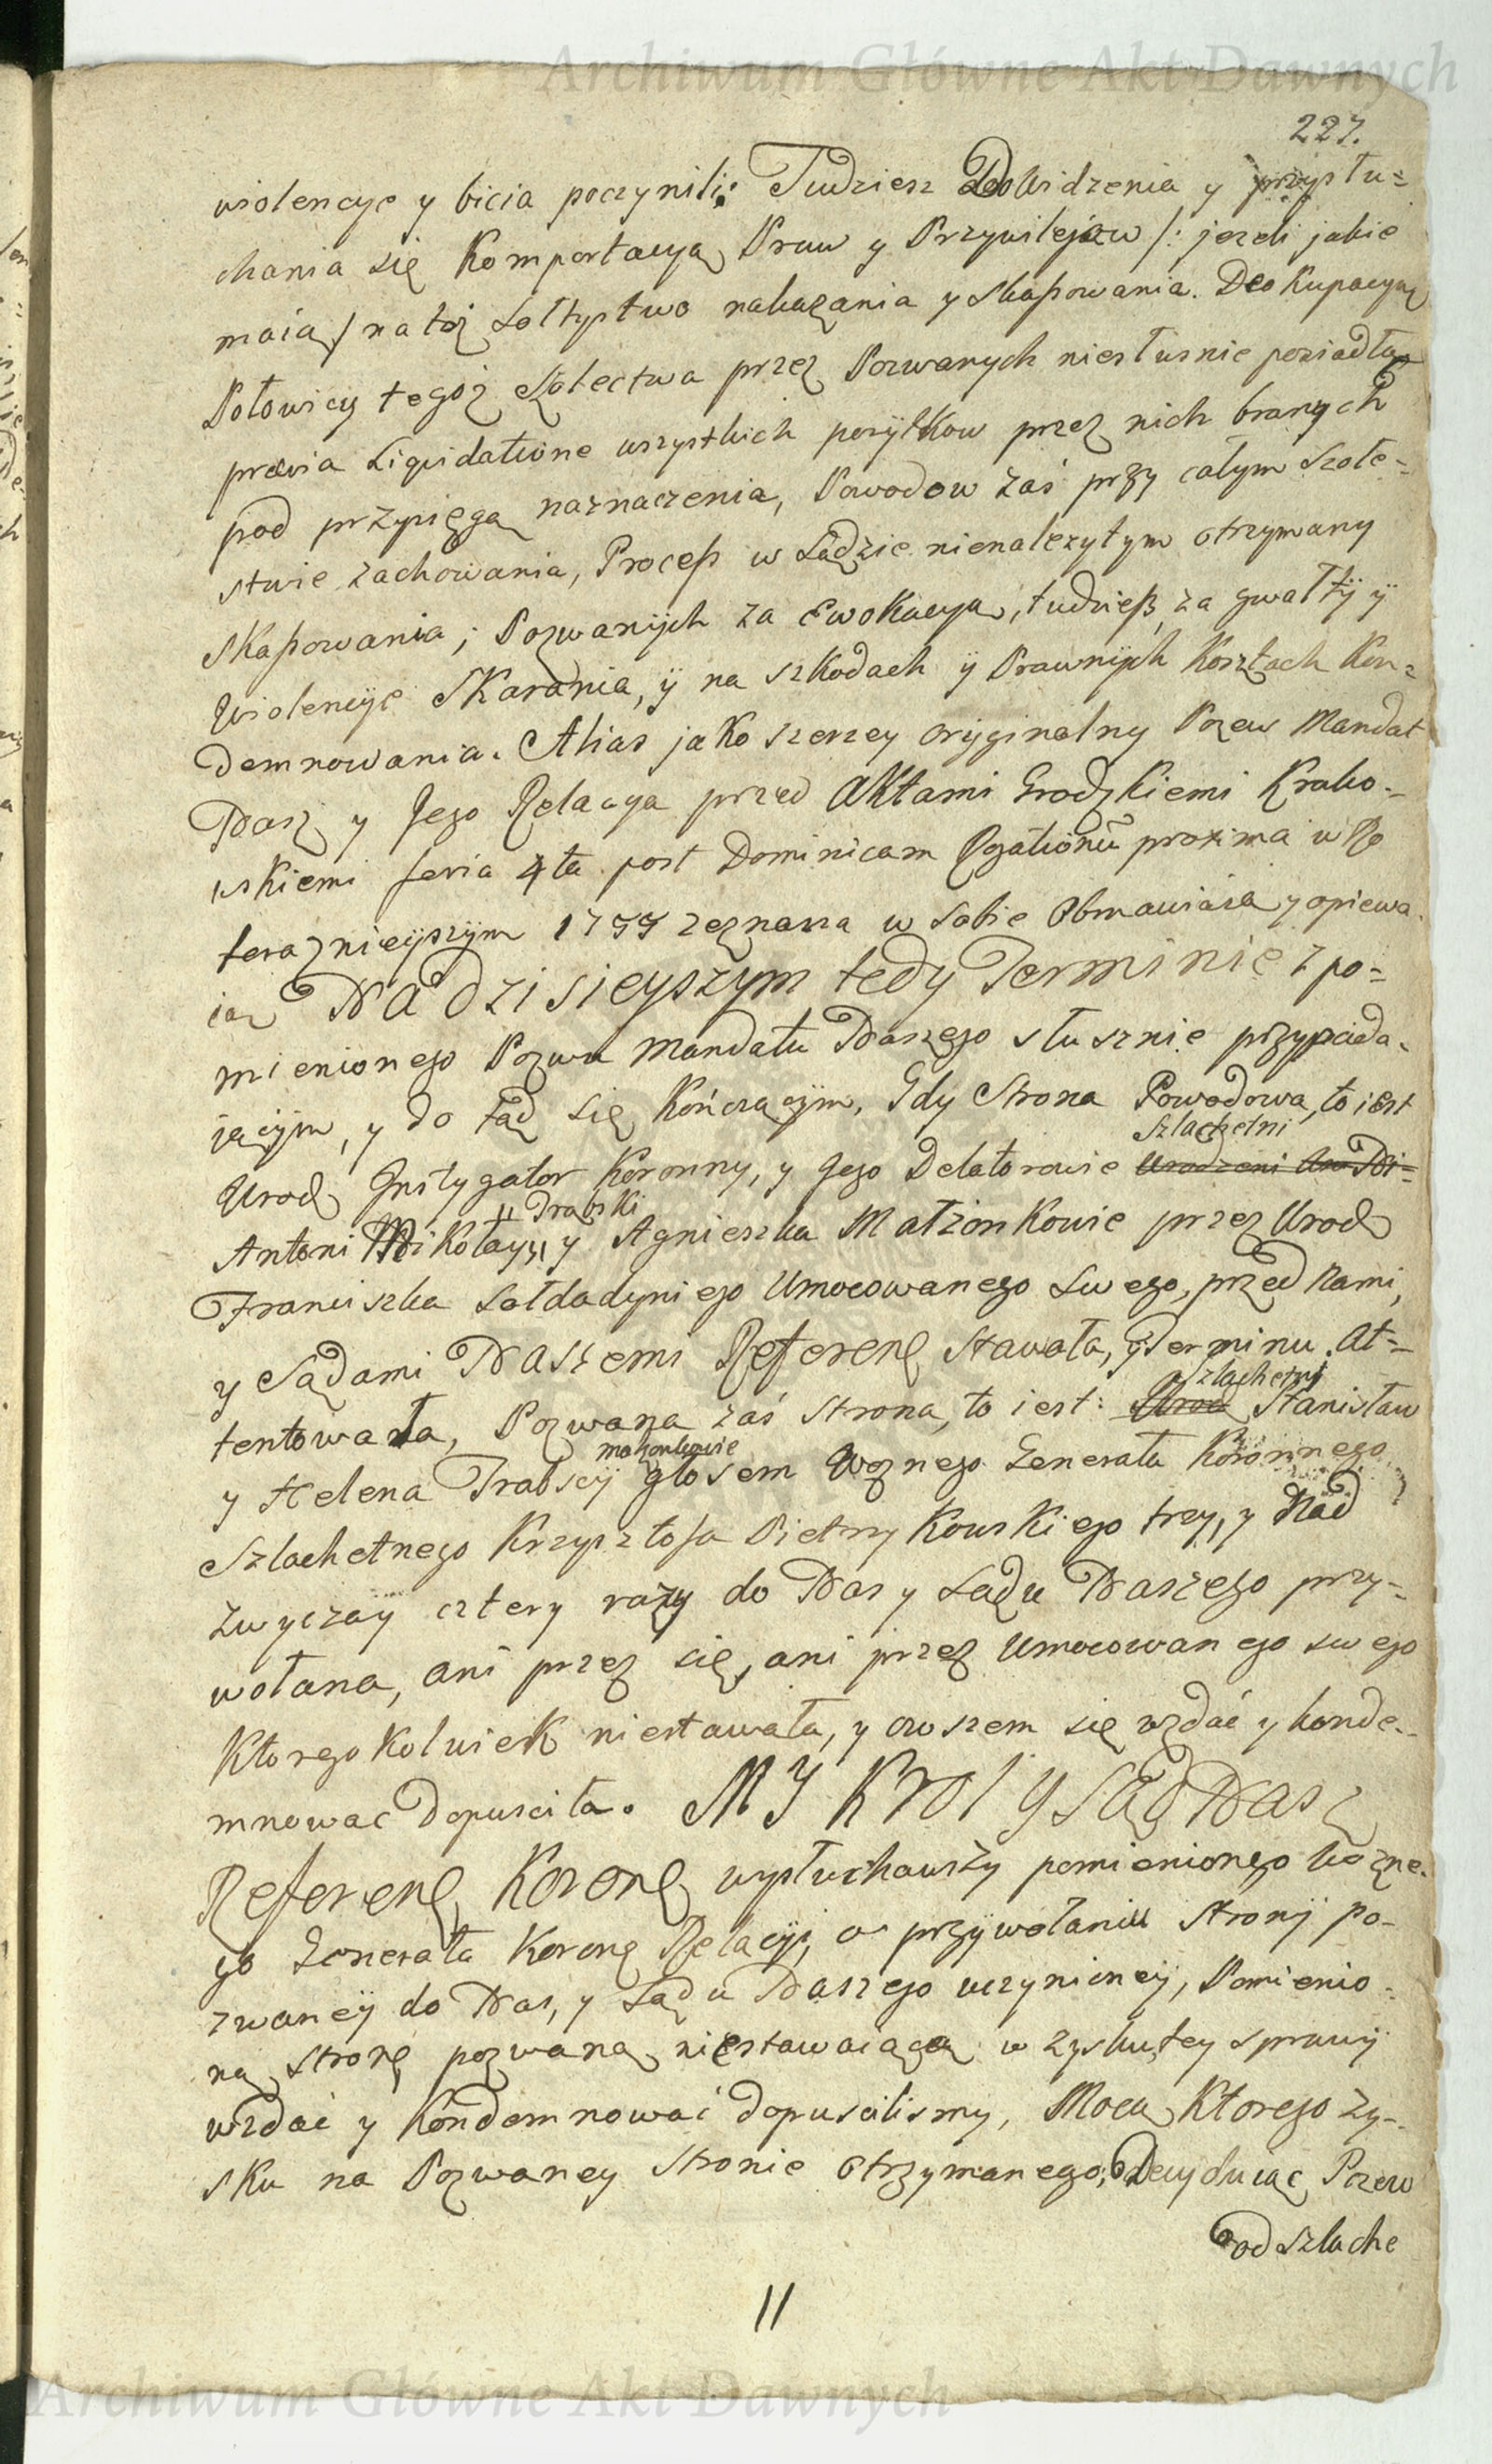 Archiwum Główne Akt Dawnych
227.
wiolencye y bicia poczynili; Tudziesz Do Widzenia y przysłu=
chania się Komportacyą Praw y Przywilejow /: jezeli jakie
maią / na toż Sołtystwo nakazania y skassowania. Deokupacyą
Połowicy tegoż Szolectwa przez Pozwanych niesłusnie posiadłą
praevia Liquidatione wszystkich pozytkow przez nich branych
pod przysięgą naznaczenia, Powodow zaś przy całym Szołe=
stwie zachowania, Process w Sądzie nienalezytym otrzymany
skassowania; Pozwanych za Ewokacyą, tudziesz za gwałty y
Wiolencye Skarania, y na szkodach y Prawnych Kosztach Kon=
demnowania. Alias jako szerzey oryginalny Pozew Mandat
Nasz y Jego Relacya przed Aktami Grodzkiemi Krako=
wskiemi feria 4ta post Dominicam Rogationũ proxima w Ro
teraznieyszym 1777 zeznana w sobie Obmawiaią y opiewa
ią Na Dzisieyszym tedy Terminie z po=
mienionego Pozwu Mandatu Naszego słusznie przypada=
jącym, y do tąd się Kończącym, Gdy Strona Powodowa, to iest
Szlachetni
Urodz Instygator Koronny, y Jego Delatorowie Urodzeni
Trabski
Antoni Mikołay y Agnieszka Małzonkowie przez Urodz
Franciszka Sołdadyniego Umocowanego Swego, przed Nami,
y Sądami Naszemi Referenę stawała, y Terminu At=
Szlachetni
tentowała, Pozwana zaś strona, to iest: Urodz Stanisław
małzonkowie
y Helena Trabscy głosem Woznego Generała Koronnego
Szlachetnego Krzysztofa Pietrzykowskiego trzy, y Nad
zwyczay cztery razy do Nas y Sądu Naszego przy=
wołana, ani przez się, ani przez Umocowanego swego
Ktoregokolwiek niestawała, y owszem się wzdać y konde=
mnowac dopuscila. MY Krol y Sąd Nasz
Referenę Koronę wysłuchawszy pomienionego Wozne=
go Generała Koronę Relacyi, o przywołaniu strony po=
zwaney do Nas, y Sądu Naszego uczynioney, Pomienio=
ną stronę pozwaną niestawaiącą w zysku tey sprawy
wzdać y Kondemnować dopuscilismy, Mocą Ktorego zy=
sku na Pozwaney Stronie otrzymanego, Decyduiąc Pozew
od szlache
11
Archiwum Główne Akt Dawnych